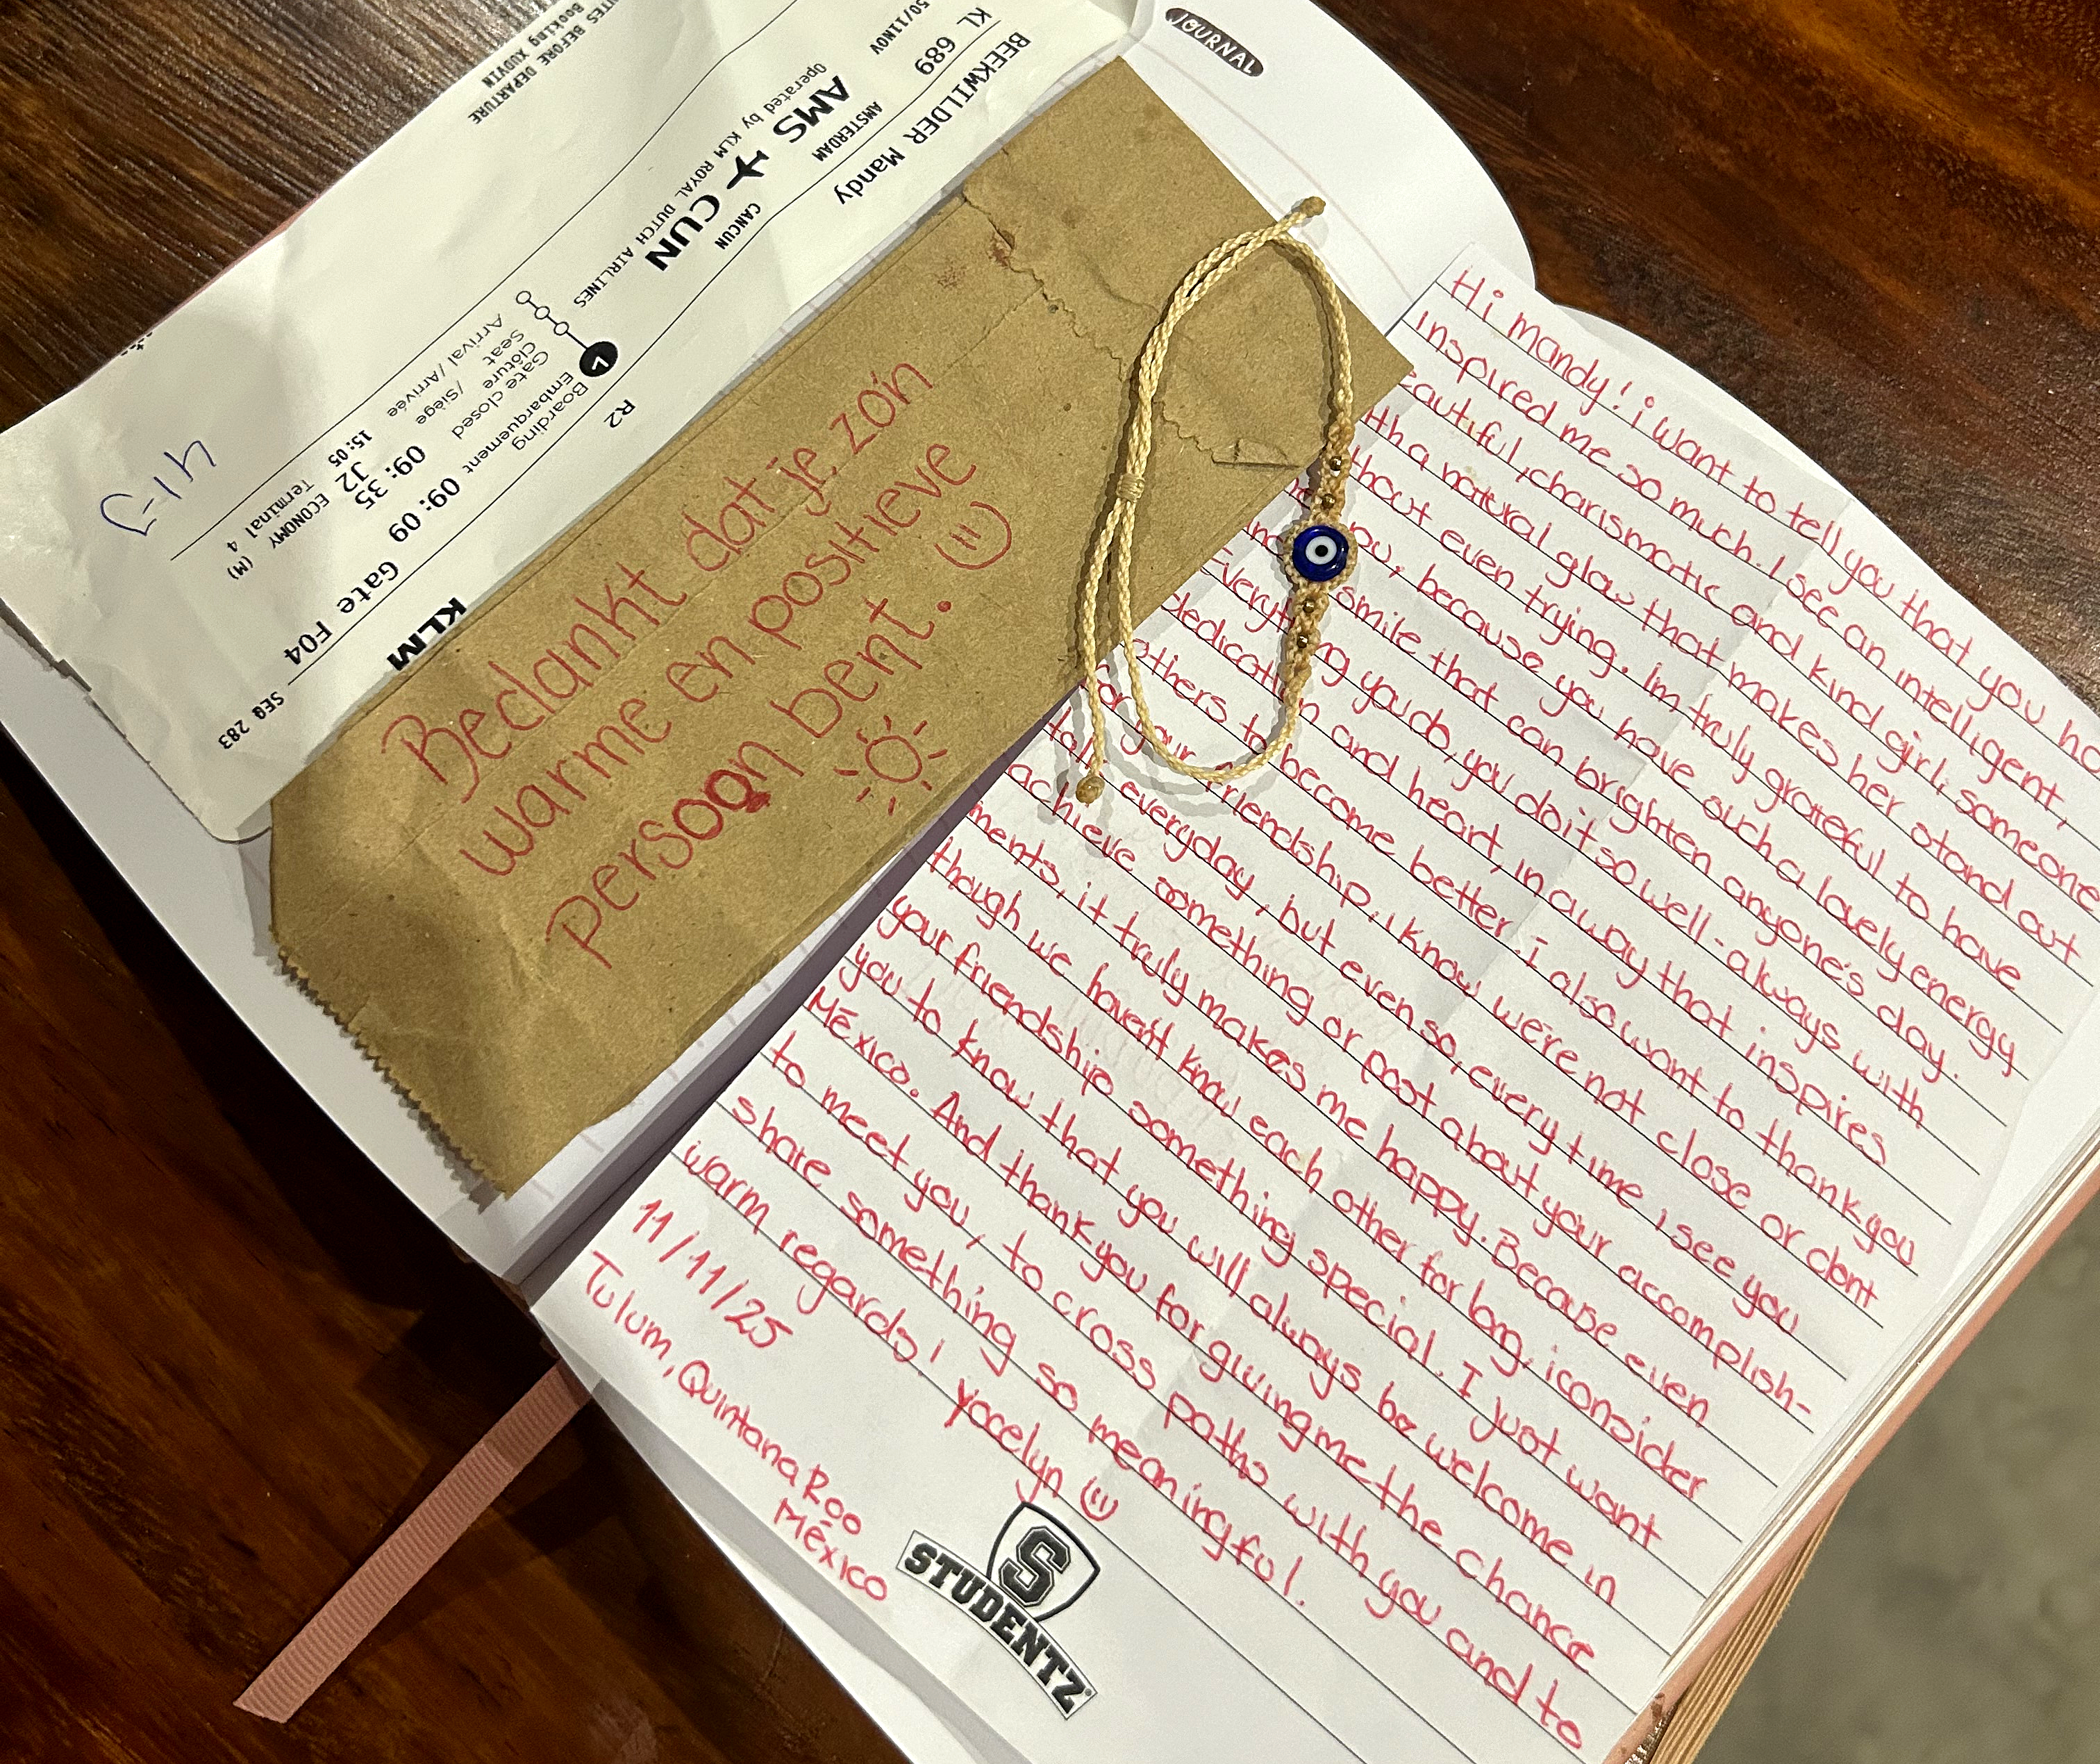 JOURNAL
TES BEFORE DEPARTURE
Booking XUDVIN
BEEKWILDER Mandy
KL 689
50/11NOV
AMSTERDAM
CANCUN
AMS CUN
Operated by KLM ROYAL DUTCH AIRLINES
R2
Boarding
Embarquement 09:09 Gate F04
Gate closed
Clôture 09:35
Seat /Siège J2 ECONOMY (M)
Arrival / Arrivée 15:05 Terminal 4
KLM
SEQ 283
Bedankt dat je zo'n
warme en positieve
persoon bent.
Hi Mandy! i want to tell you that you ha
inspired me so much. I see an intelligent,
eautiful, charismatic and kind girl; someone
ith a natural glow that makes her stand out
thout even trying. Im truly grateful to have
you, because you have such a lovely energy
smile that can brighten anyone's day.
Everything you do, you do it so well-always with
dedication and heart, in a way that inspires
others to become better. i also want to thank you
for your friendship. i know were not close or dont
talk everyday, but even so, every time i see you
achieve something or post about your accomplish-
ments, it truly makes me happy. Because even
though we haven't know each other for long, i consider
your friendship something special. I just want
you to know that you will always be welcome in
México. And thank you for giving me the chance
to meet you, to cross paths with you and to
share something so meaningful.
warm regards, Yocelyn
11/11/25
Tulum, Quintana Roo
México
S
STUDENTZ